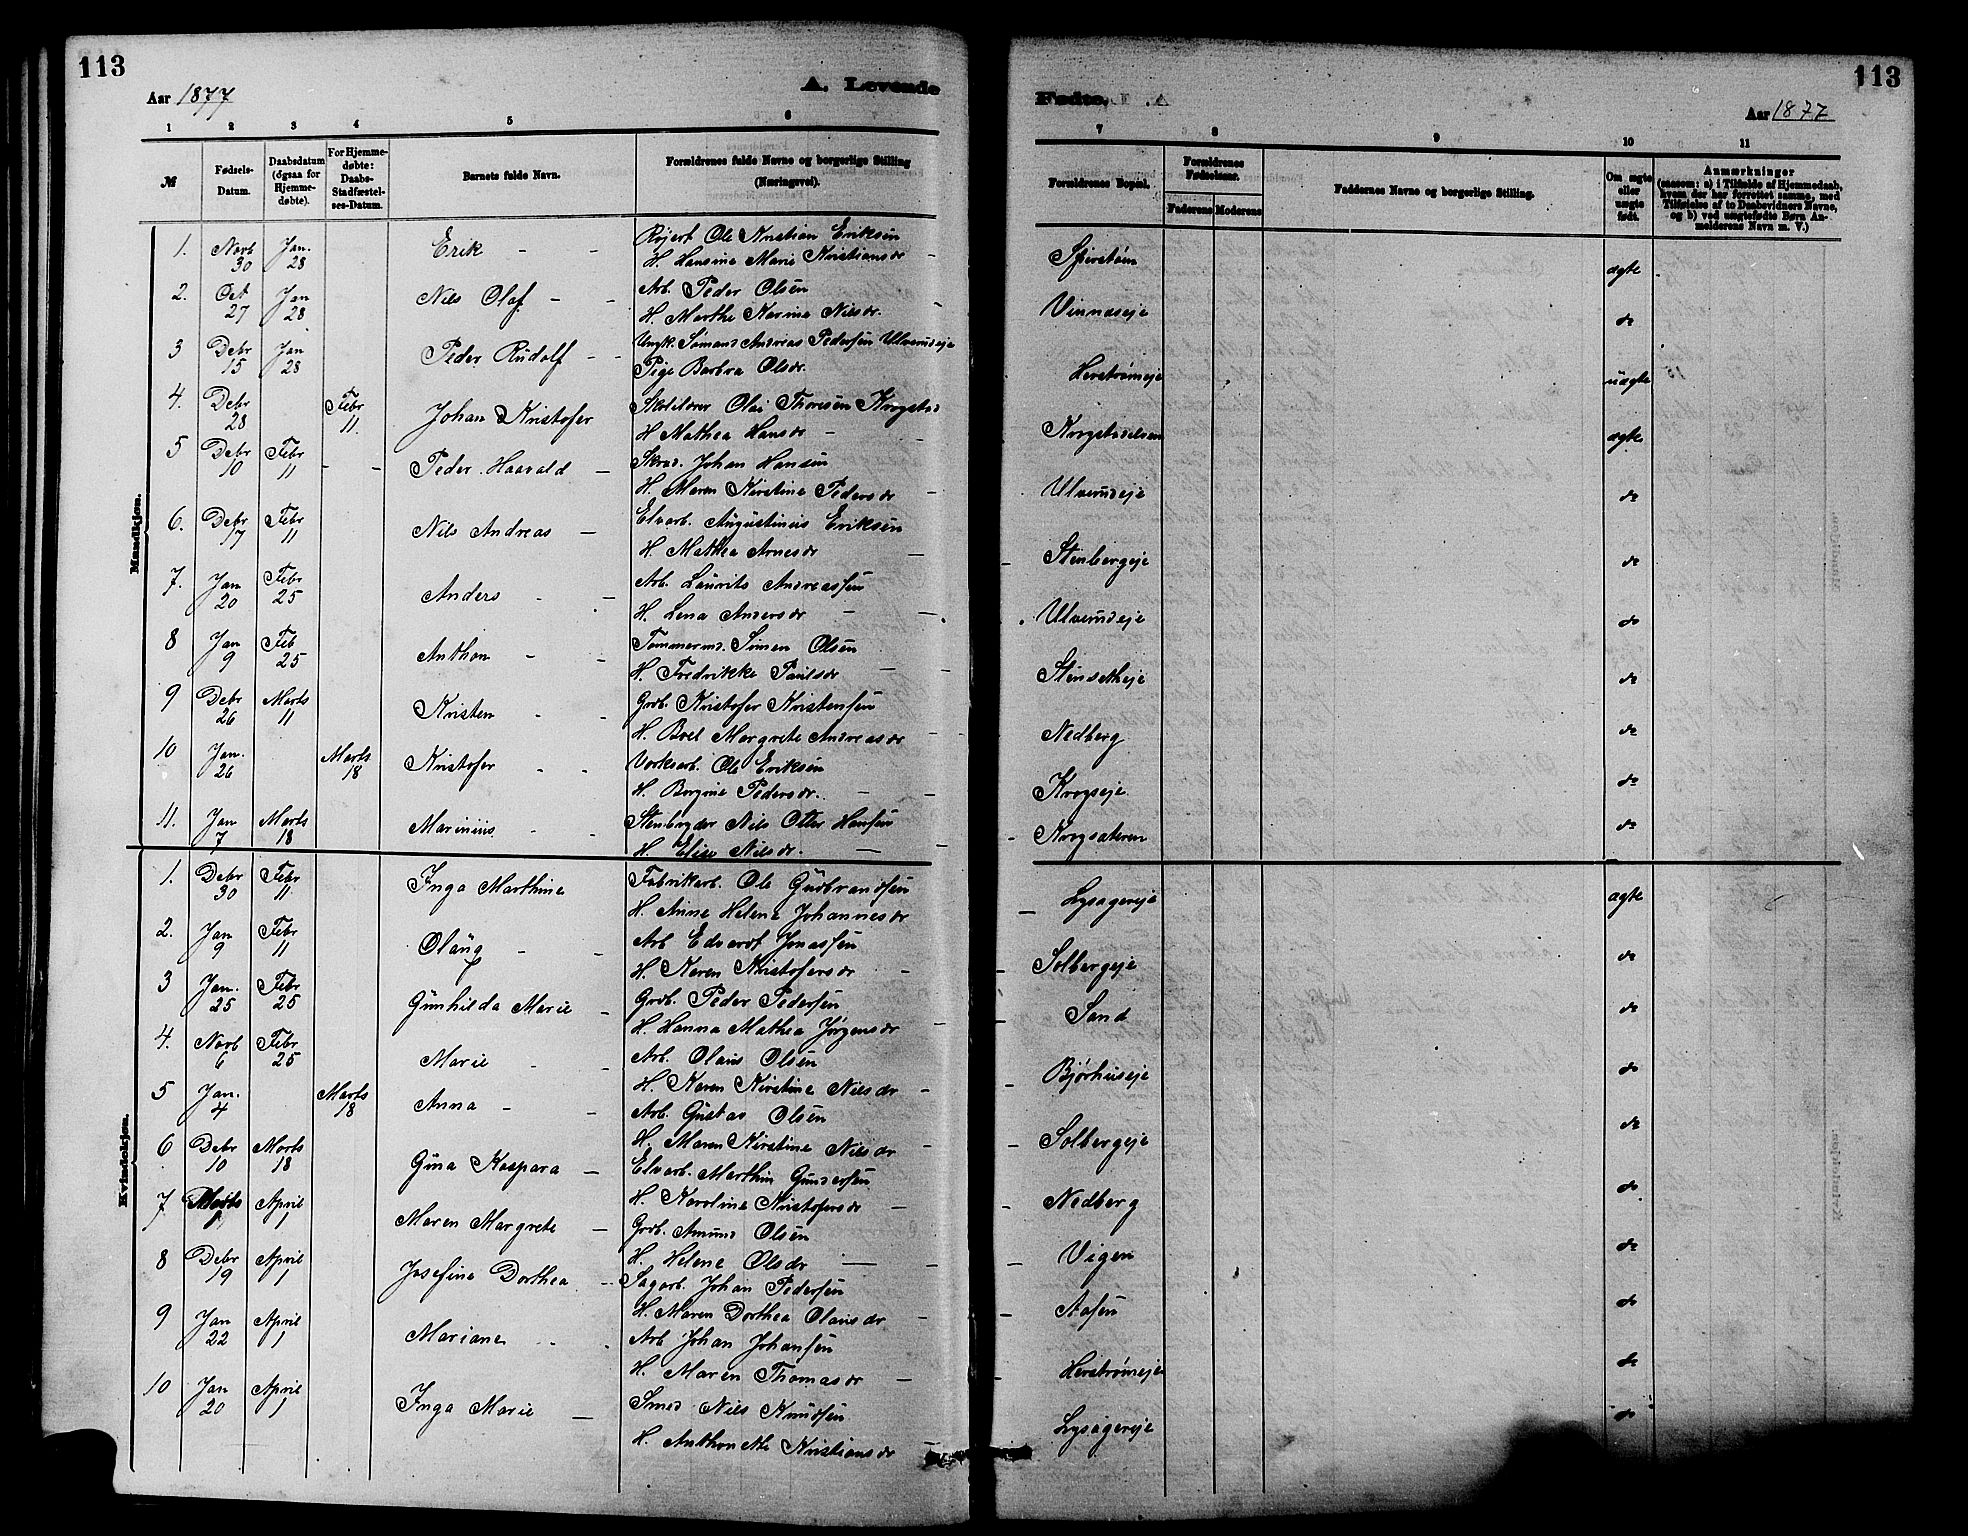 113
Aar 1877
A. Levende
1 2 3 4 5 6
№
Fødsels-Datum.
Daabsdatum (ogsaa for Hjemmedøbte).
For Hjemmedøbte: Daabs-Stadfæstelses-Datum.
Barnets fulde Navn.
Forældrenes fulde Navne og borgerlige Stilling (Næringsvei).
Mandkjøn.
1. Novb 30 Jan. 28 Erik - - Ole Kristian Eriksen
H. Hansine Marie Kristiansdr -
2. Oct 27 Jan 28 Nils Olaf - - Arb. Peder Olsen
H. Marthe Karine Nilsdr.
3 Debr 15 Jan 28 Peder Rudolf - - Ungk. Simand Andreas Pedersen Ulverudeje
Pige Barbra Olsdr.
4. Debr 28 Febr 11. Johan Kristofer Skolelærer Olai Thoresen Krogstad
H Mathea Hansdr - -
5 Debr 10 Febr 11 - - Peder Haavald - Skræd. Johan Hansen
H. Maren Kirstine Pedersdr -
6. Debr 17 Febr 11 Nils Andreas - Elvarb. Augustinus Eriksen
H. Mathea Arnesdr -
7. Jan 20 Febr 25 Anders - - Arb. Laurits Andreassen
H. Lena Andersdr - -
8 Jan 9 Feb 25 Anthon - - Tømmermd. Simen Olsen
H. Fredrikke Paulsdr - -
9 Debr 26 Marts 11 Kristen - - Grdb. Kristofer Kristensen
H. Boel Margrete Andreasdr -
10 Jan. 26 Marts 18 Kristofer - - Værksarb. Ole Eriksen
H. Bergine Pedersdr. - -
11. Jan 7 Marts 18 Marinius - - Stenbryder Nils Otter Hansen
H. Elise Nilsdr. - -
Kvindekjøn.
1. Debr 30 Febr 11 Inga Marthine Fabrikarb. Ole Gudbrandsen
H. Anne Helene Johannesdr
2. Jan 9 Febr 11 Olaug - - Arb Edvardt Jonassen
H. Karen Kristofersdr -
3 Jan. 25 Febr 25 Gunhilda Marie - Grdb. Peder Pedersen
H. Hanna Mathea Jørgensdr -
4. Novb 6 Febr 25 Marie - - Arb. Olaus Olsen
H. Karen Kirstine Nilsdr -
5 Jan. 4 Marts 18 Anna - - Arb. Gustav Olsen
H. Maren Kirstine Nilsdr -
6 Debr 10 Marts 18 Gina Kaspara - Elvarb. Marthin Gundersen
H. Karoline Kristofersdr -
7 Marts 1 April 1 Maren Margrete - Grdb. Amund Olsen
H. Helene Olsdr - -
8 Debr 19 April 1 Josefine Dorthea - Sagarb. Johan Pedersen
H. Maren Dorthea Olausdr -
9 Jan 22 April 1 Mariane - - Arb Johan Johansen
H. Maren Thomasdr -
10 Jan 20 April 1 Inga Marie - Smed Nils Knudsen
H. Anthonette Kristiansdr -
113
Fødte.
Aar 1877
7 8 9 10 11
Forældrenes Bopæl.
Forældrenes Fødselsaar.
Faderens Moderens
Faddernes Navne og borgerlige Stilling.
Om ægte eller uægte født.
Anmærkninger
(saasom: a) i Tilfælde af Hjemmedaab, hvem der har forrettet samme, med Tilføielse af to Daabsvidners Navne, og b) ved uægtefødte Børn Anmelderens Navn m. V.)
ægte
Vinnæseje do
Herstrømeje uægte
ægte
Ulverudeje do
Stenbergeje do
Ulverudeje do
Stensetheje do
Nedberg do
Krogseje do
Krogsæteren do
Lysagereje ægte
Solbergeje do
Sand do
Bjørhuseje do
Solbergeje do
Nedberg do
Vigen do
Aasen do
Herstrømeje do
Lysagereje do